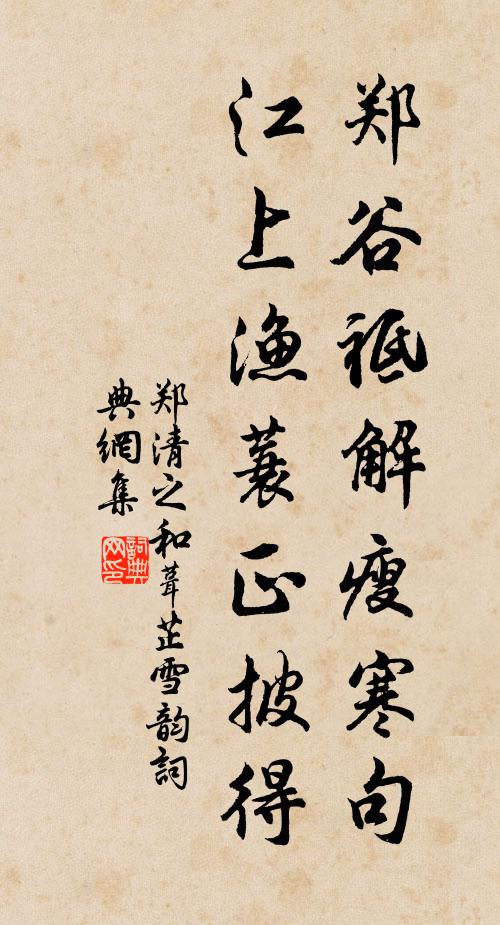 郑谷祗解瘦寒句
江上渔蓑正披得
郑清之和葺芷雪韵詞
典網集
詞典
网印